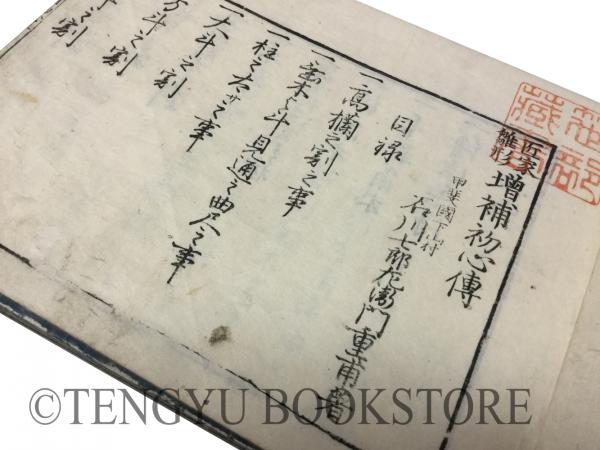 匠家
雛形
増補初心傳
甲斐國下山村
石川七郎左衛門重甫著
目録
一高欄之割之事
一垂木と斗見通之曲尺之事
一柱之太サ之事
一大斗之割
方斗之割
斗之割
之割
©TENGYU BOOKSTORE